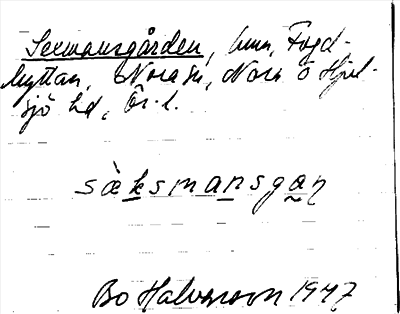 Sexmansgården, hmn, Fogd-
hyttan, Nora sn, Nora o Hjul-
sjö hd, Ör. l.
sàksmansgaṇ
Bo Halvarson 1947